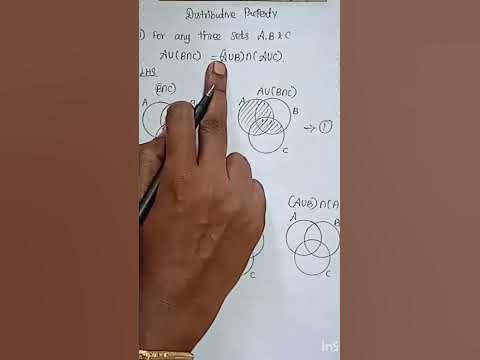 Distributive Property
1) For any three sets A, B & C
A∪(B∩C) = (A∪B)∩(A∪C).
LHS
(B∩C)
A∪(B∩C)
A
A
B
→ ①
C
(A∪B)∩(A
A
B
C
C
Ins